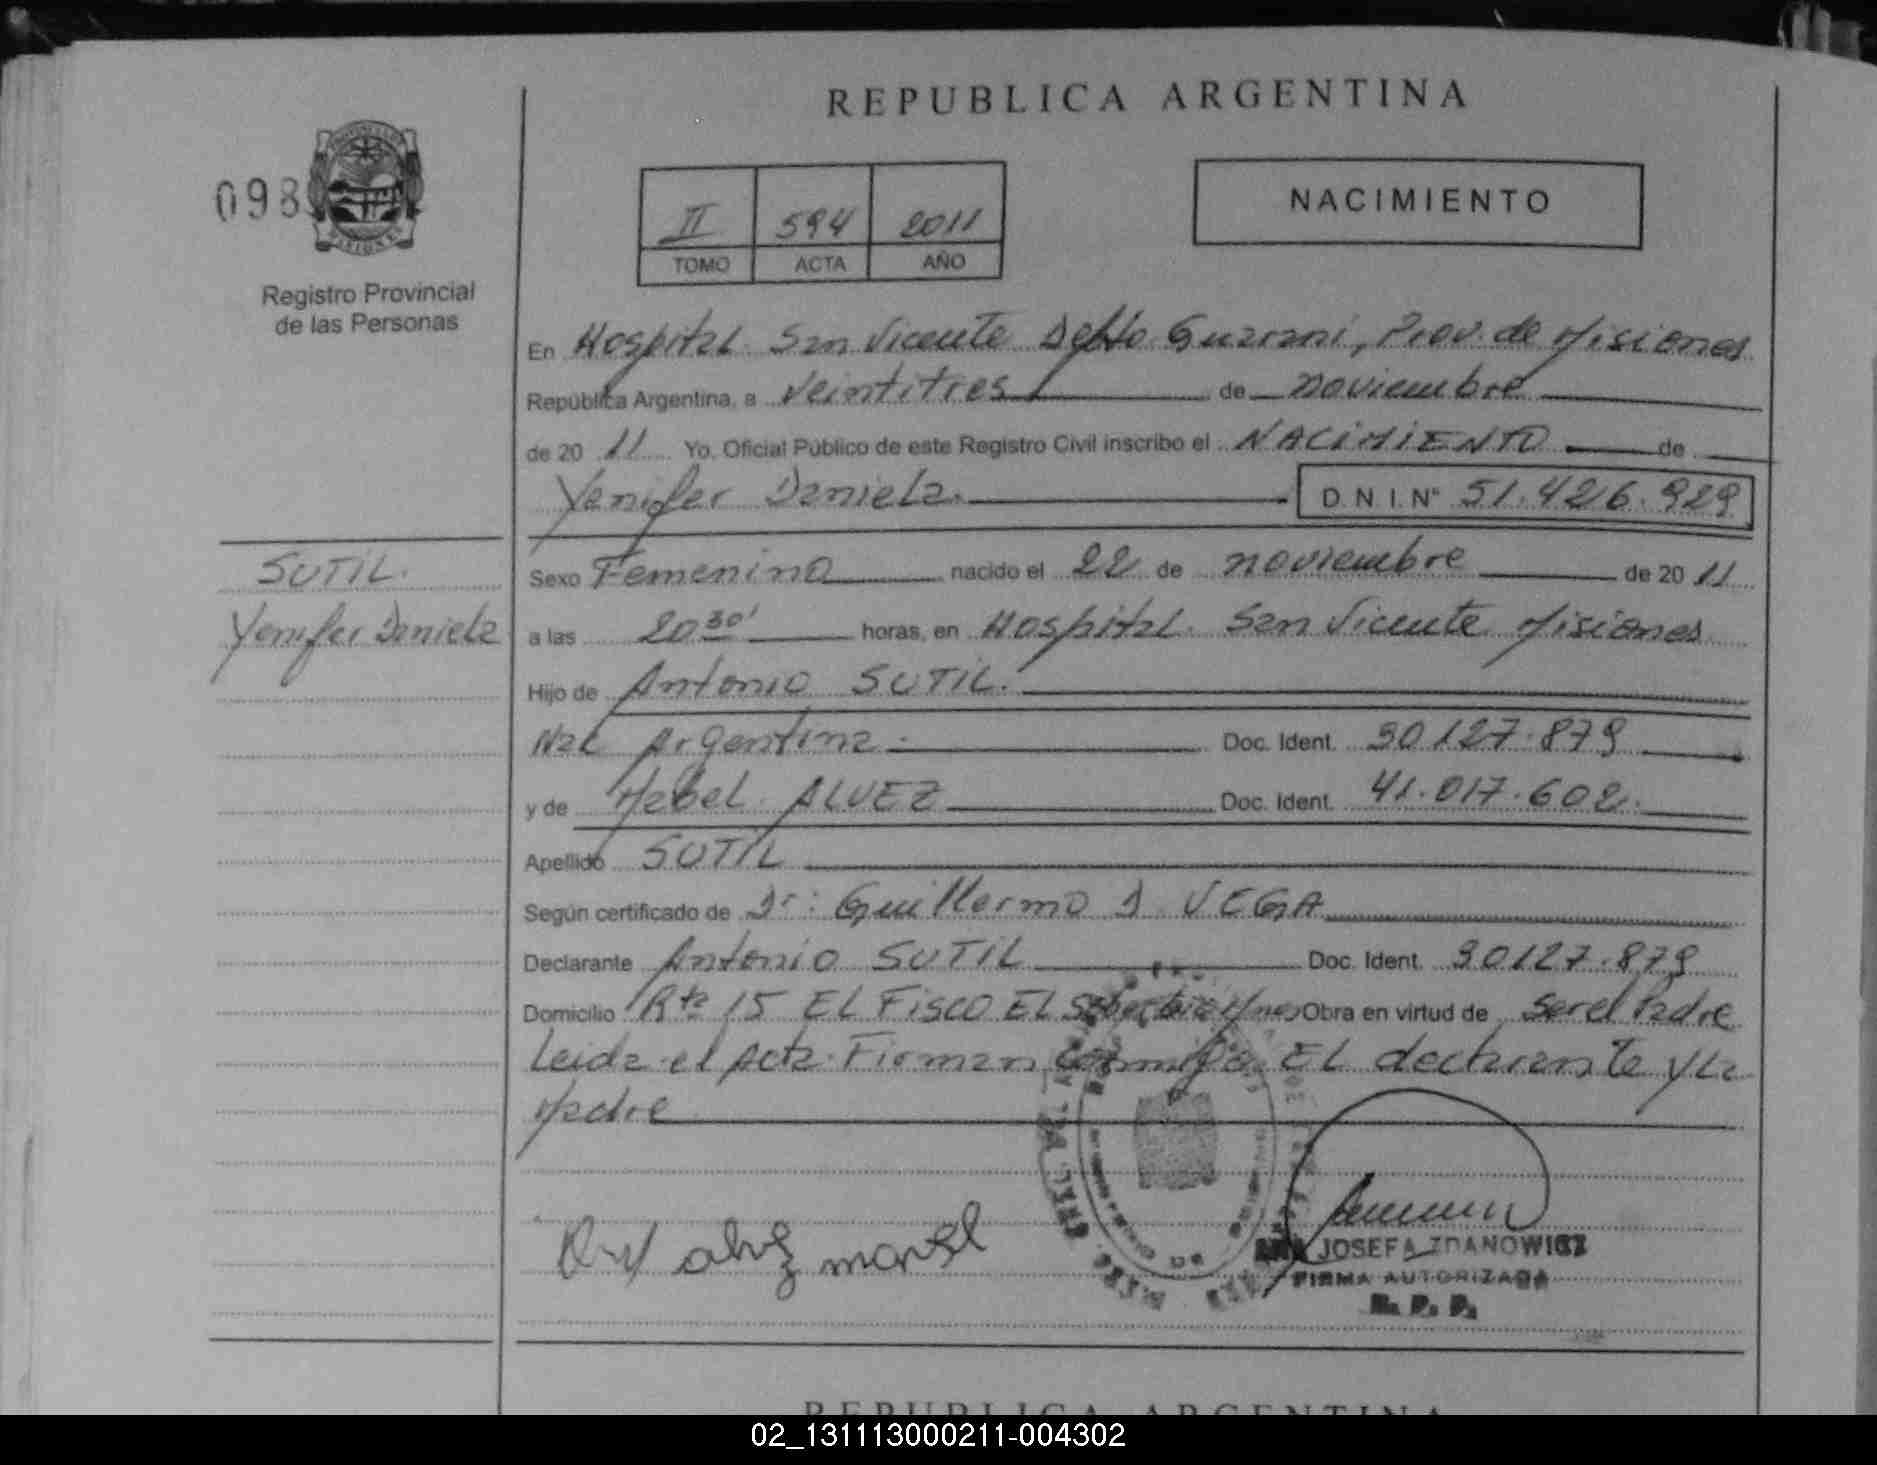 REPUBLICA ARGENTINA
098
II 594 2011
TOMO ACTA AÑO
NACIMIENTO
Registro Provincial
de las Personas
En Hospital San Vicente Depto Guarani, Prov. de Misiones
República Argentina, a veintitres de noviembre
de 20 11 Yo, Oficial Público de este Registro Civil inscribo el NACIMIENTO de
Yenifer Daniela. D.N.I. N° 51.426.929
SUTIL.
Yenifer Daniela
Sexo Femenino nacido el 22 de noviembre de 20 11
a las 20 30' horas, en Hospital San Vicente Misiones
Hijo de Antonio SUTIL.
Nac Argentina. Doc. Ident. 30127.879
y de Mabel ALVEZ Doc. Ident. 41.017.602.
Apellido SUTIL
Según certificado de Dr: Guillermo D. VEGA
Declarante Antonio SUTIL Doc. Ident. 30127.879
Domicilio Rta 15 EL Fisco EL Soberbio Mnes Obra en virtud de Ser el Padre
Leida el Acta Firman conmigo EL declarante y La
Madre
alvez mavel
JOSEFA ZDANOWICZ
FIRMA AUTORIZADA
R. P. P.
REPUBLICA ARGENTINA
02_131113000211-004302